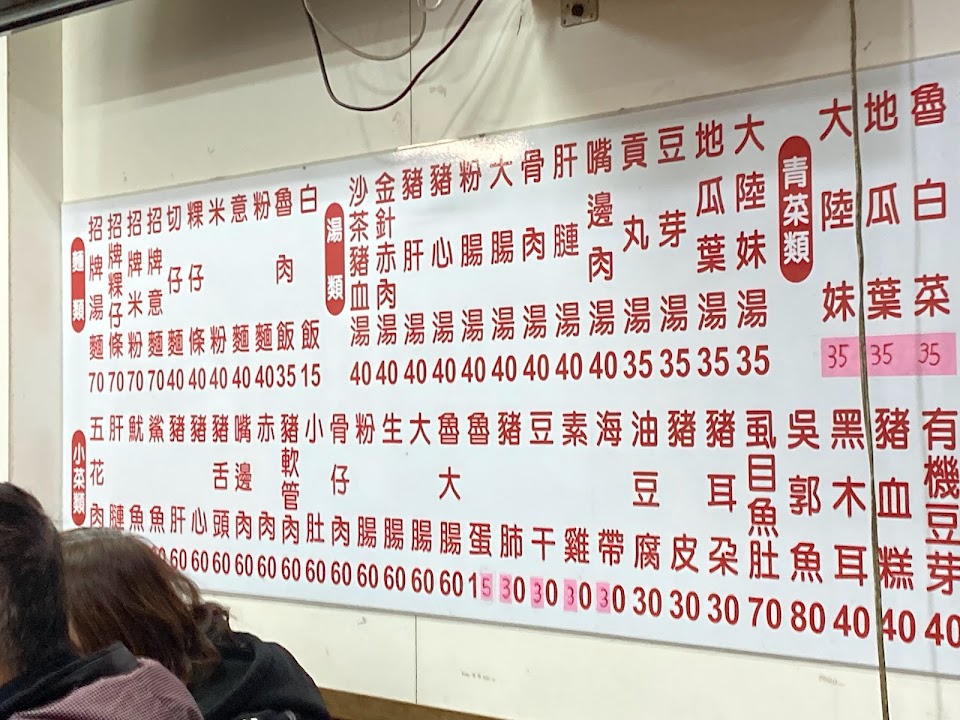 麵類
招牌湯麵70
招牌粿仔條70
招牌米粉70
招牌意麵70
切仔麵40
粿仔條40
米粉40
意麵40
粉麵40
魯肉飯35
白飯15
湯類
沙茶豬血湯40
金針赤肉湯40
豬肝湯40
豬心湯40
粉腸湯40
大腸湯40
骨肉湯40
肝腱湯40
嘴邊肉湯40
貢丸湯35
豆芽湯35
地瓜葉湯35
大陸妹湯35
青菜類
大陸妹35
地瓜葉35
魯白菜35
小菜類
五花肉
肝腱
魷魚
鯊魚60
豬肝60
豬心60
豬舌頭60
嘴邊肉60
赤肉60
豬軟管肉60
小肚60
骨仔肉60
粉腸60
生腸60
大腸60
魯大腸60
魯蛋15
豬肺30
豆干30
素雞30
海帶30
油豆腐30
豬皮30
豬耳朵30
虱目魚肚70
吳郭魚80
黑木耳40
豬血糕40
有機豆芽40